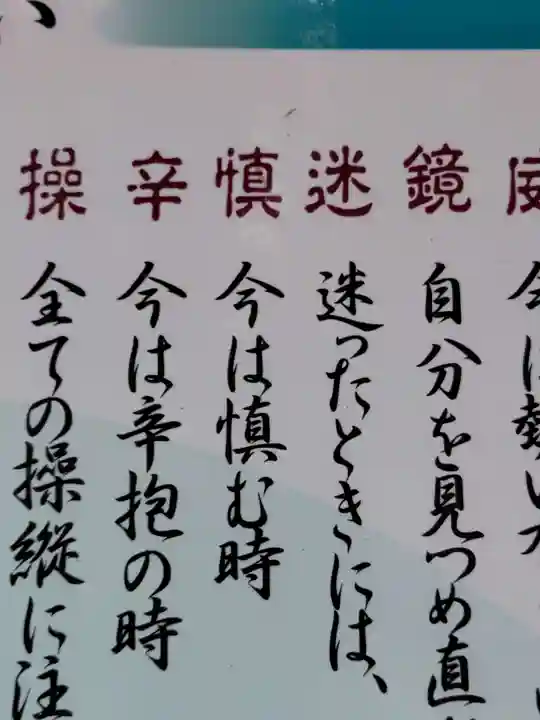 鏡
自分を見つめ直
迷
迷ったときには、
慎
今は慎む時
辛
今は辛抱の時
操
全ての操縦に注
い